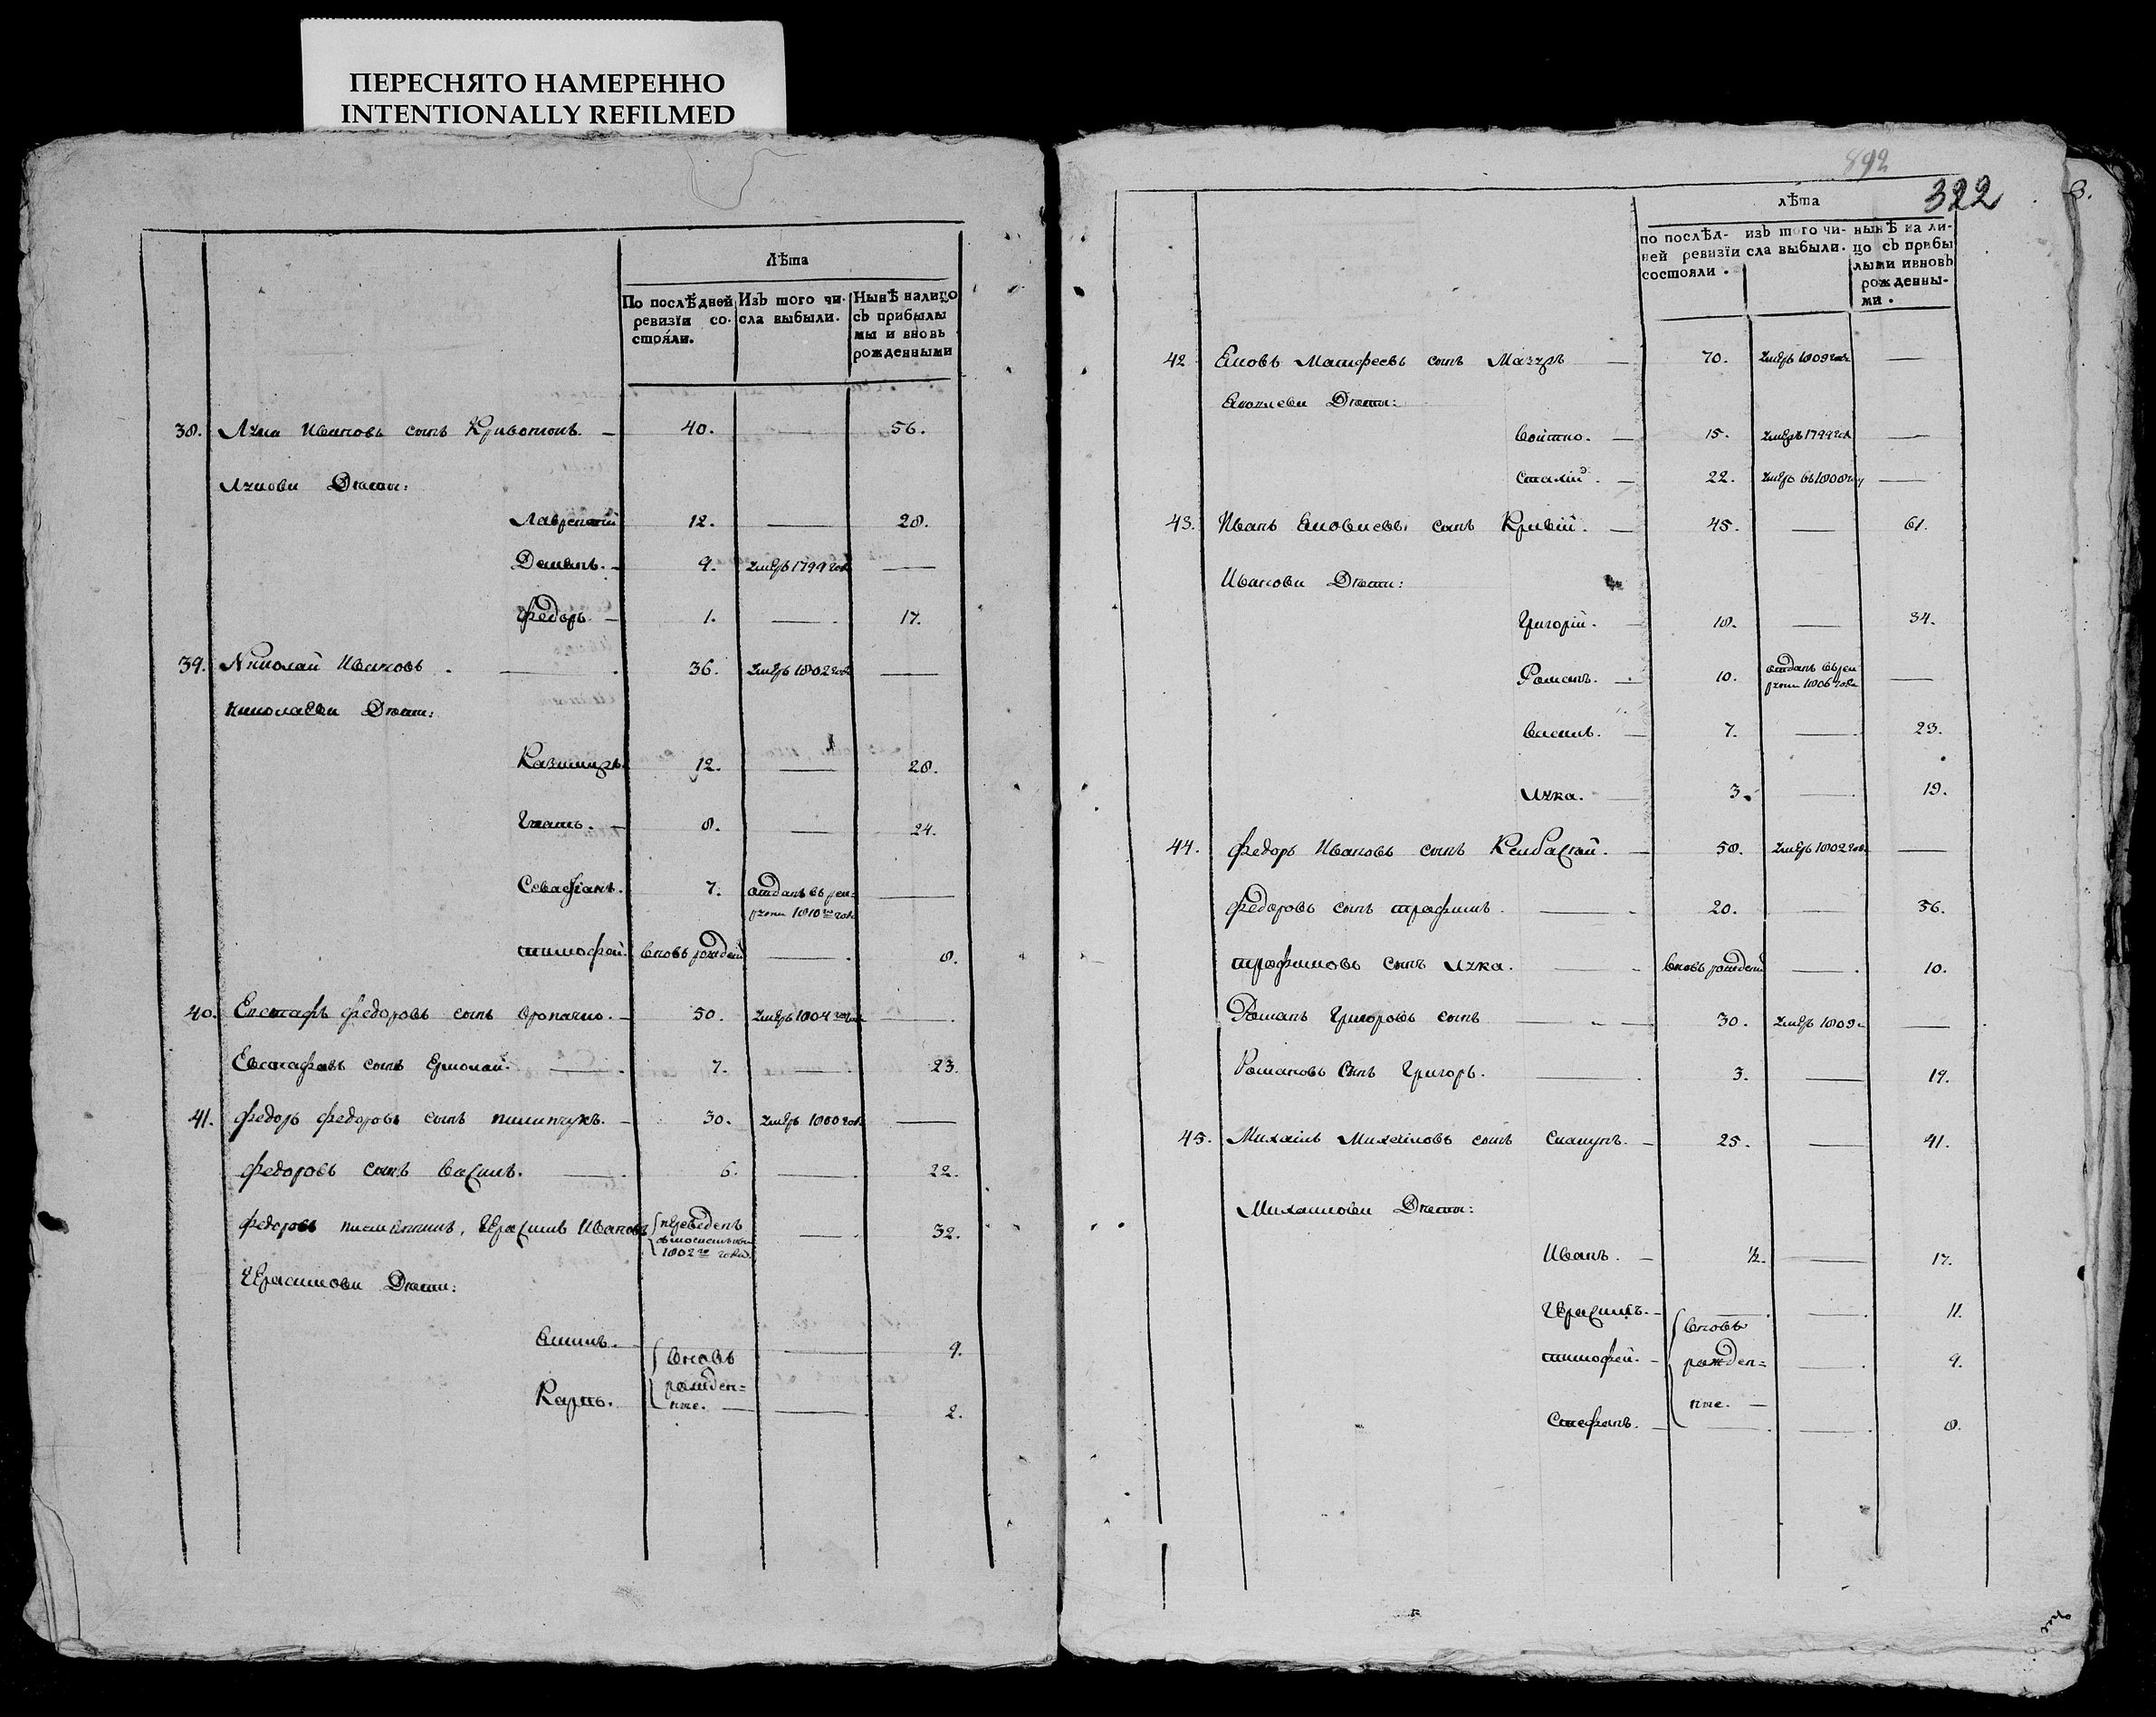 ПЕРЕСНЯТО НАМЕРЕННО
INTENTIONALLY REFILMED
Лѣта
По послѣдней ревизїи со-стояли.
Изъ того чи-сла выбыли.
Нынѣ налицо съ прибылы мы и вновь рожденными
38. Лукиа Ивановъ сынъ — 40. — 56.
Дѣти:
Лаврентій 12. — 28.
Демянъ. — 9. умеръ 1799 года —
Федоръ — 1. — 17.
39. Николай Ивановъ — 36. умеръ 1802 года —
Николаеви Дѣти:
Казимиръ. 12. — 28.
Игнатъ. — 8. — 24.
Севастіанъ. 7. отданъ въ рекруты 1810го года —
тимофей. вновь рожден — 8.
40. Евстафъ федоровъ сынъ — 50. умеръ 1804го года —
Евстафовъ сынъ Ермолай. — 7. — 23.
41. федоръ федоровъ сынъ пилипчукъ. — 30. умеръ 1800 года —
федоровъ сынъ Василь. — 6. — 22.
федоровъ племянникъ, Герасимъ Ивановъ переведенъ 1802го года — 32.
Герасимови Дѣти:
— вновь — 9.
Карпъ. рожден=ные. — 2.
892
322
8.
лѣта
по послѣд-ней ревизїи состояли.
изъ того чи-сла выбыли.
нынѣ на ли-цо съ прибы лыми ивновь рожденны-ми.
42. Яковъ Матфеевъ сынъ Мазуръ — 70. умеръ 1809 года —
Яковлеви Дѣти:
Войтко. — 15. умеръ 1799 года —
22. умеръ въ 1808 году —
43. Иванъ Яковлевъ сынъ Кривій. — 45. — 61.
Иванови Дѣти:
Григорій. — 18. — 34.
Романъ. — 10. отданъ въ рекруты 1806 года —
Василь. — 7. — 23.
Лука. — 3. — 19.
44. федоръ Ивановъ сынъ — 58. умеръ 1802 года —
федоровъ сынъ трофимъ. — 20. — 36.
трофимовъ сынъ Лука. — вновь рожденій — 10.
Романъ Григоровъ сынъ — 30. умеръ 1809 —
Романовъ Сынъ Григоръ. — 3. — 19.
45. Михаилъ Михайловъ сынъ Скакунъ. — 25. — 41.
Михайлови Дѣти:
Иванъ. — ½. — 17.
Герасимъ. — вновь — 11.
тимофей. — рожден= — 9.
Стефанъ. — ные. — 8.